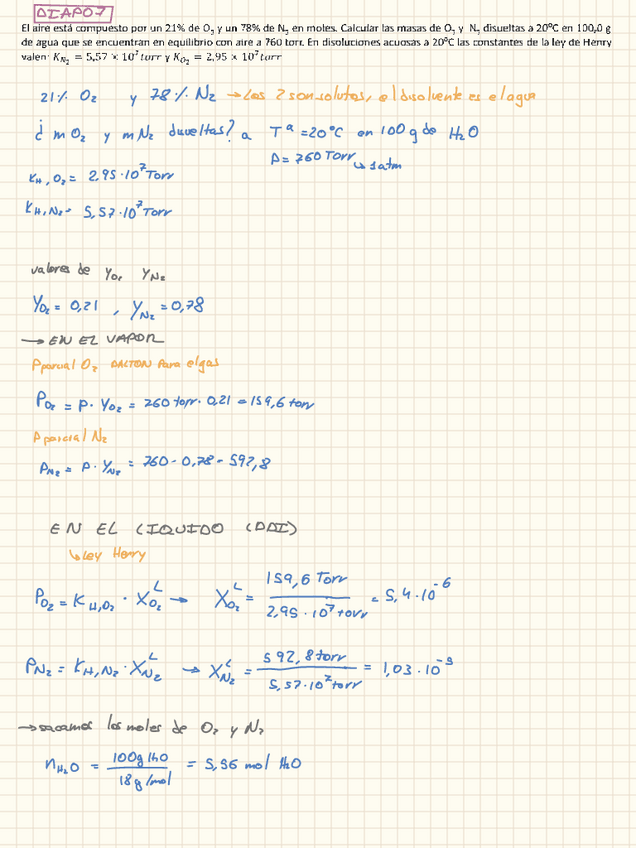 DIAPO 7
El aire está compuesto por un 21% de O₂ y un 78% de N₂ en moles. Calcular las masas de O₂ y N₂ disueltas a 20°C en 100,0 g
de agua que se encuentran en equilibrio con aire a 760 torr. En disoluciones acuosas a 20°C las constantes de la ley de Henry
valen: K_N₂ = 5,57 × 10⁷ torr y K_O₂ = 2,95 × 10⁷ torr
21% O₂ y 78% N₂ → Los 2 son solutos, el disolvente es el agua
¿ m O₂ y m N₂ disueltas? a Tª = 20°C en 100 g de H₂O
P = 760 Torr ↳ 1 atm
K_H,O₂ = 2,95·10⁷ Torr
K_H,N₂ = 5,57·10⁷ Torr
valores de Y_O₂ Y_N₂
Y_O₂ = 0,21 , Y_N₂ = 0,78
→ EN EL VAPOR
P parcial O₂ DALTON para el gas
P_O₂ = P · Y_O₂ = 760 torr · 0,21 = 159,6 torr
P parcial N₂
P_N₂ = P · Y_N₂ = 760 · 0,78 = 592,8
EN EL LIQUIDO (DDI)
↳ Ley Henry
P_O₂ = K_H,O₂ · X_O₂^L → X_O₂^L = 159,6 Torr / 2,95 · 10⁷ torr = 5,4·10⁻⁶
P_N₂ = K_H,N₂ · X_N₂^L → X_N₂^L = 592,8 torr / 5,57·10⁷ torr = 1,03·10⁻⁵
→ sacamos los moles de O₂ y N₂
n_H₂O = 100g H₂O / 18 g/mol = 5,56 mol H₂O